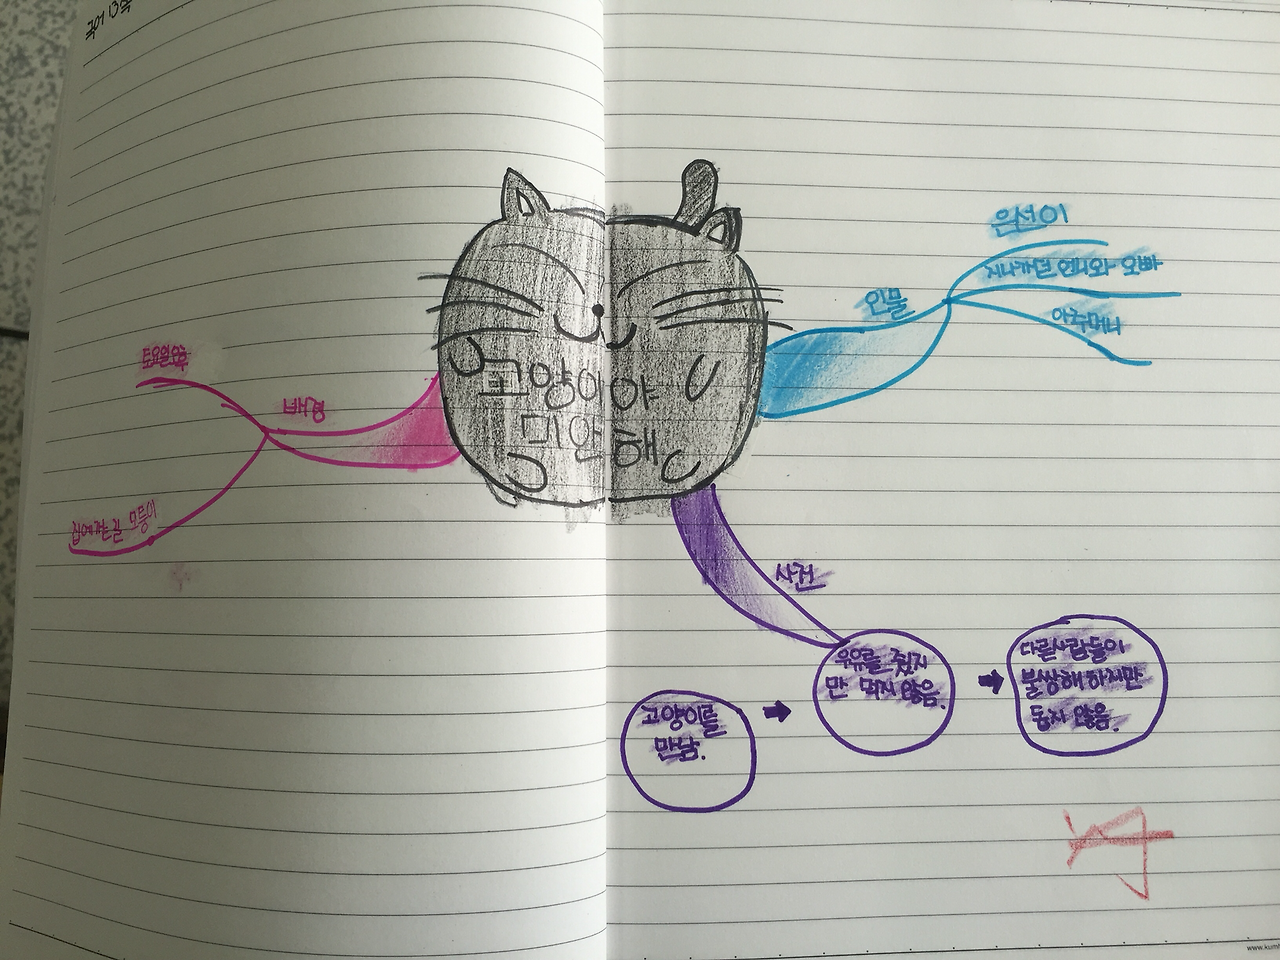 국어
고양이야
미안해
배경
토요일 오후
집에 가는 길 모퉁이
인물
은선이
지나가던 언니와 오빠
아주머니
사건
고양이를
만남.
우유를 줬지
만 먹지 않음.
다른사람들이
불쌍해 하지만
돕지 않음.